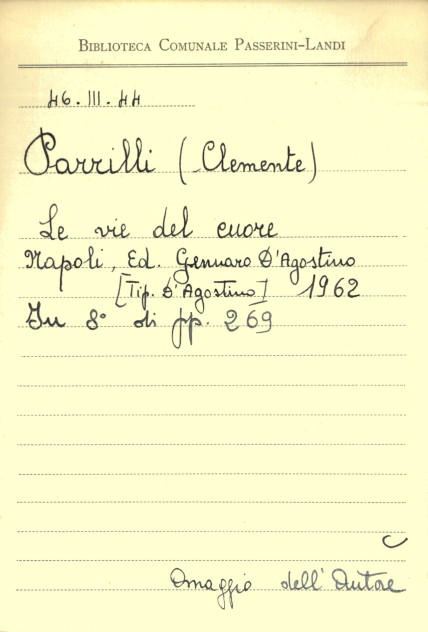 BIBLIOTECA COMUNALE PASSERINI-LANDI
46.III.44
Parrilli (Clemente)
Le vie del cuore
Napoli, Ed. Gennaro D'Agostino
[Tip. D'Agostino] 1962
In 8° di pp. 269
C
Omaggio dell'Autore